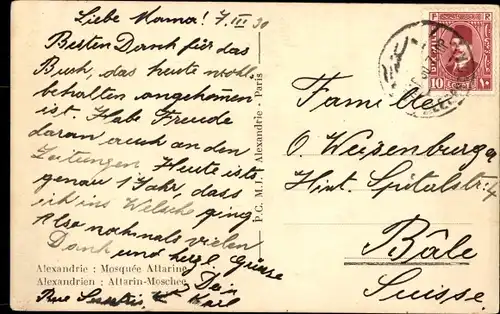 Liebe Mama! 7.III 30
Besten Dank für das
Buch, das heute wohl-
behalten angekommen
ist. Habe Freude
daran auch an den
Zeitungen. Heute ists
genau 1 Jahr, dass
ich ins Welsche ging
Also nochmals vielen
Dank und herzl. Grüsse
Dein
Karl
Rue
Alexandrie : Mosquée Attarine
Alexandrien : Attarin-Moschee
P. C. M. J. Alexandrie - Paris
Familie
O. Weisenburg
Hint. Spitalstr.
Bâle
Suisse
10
EGYPTE